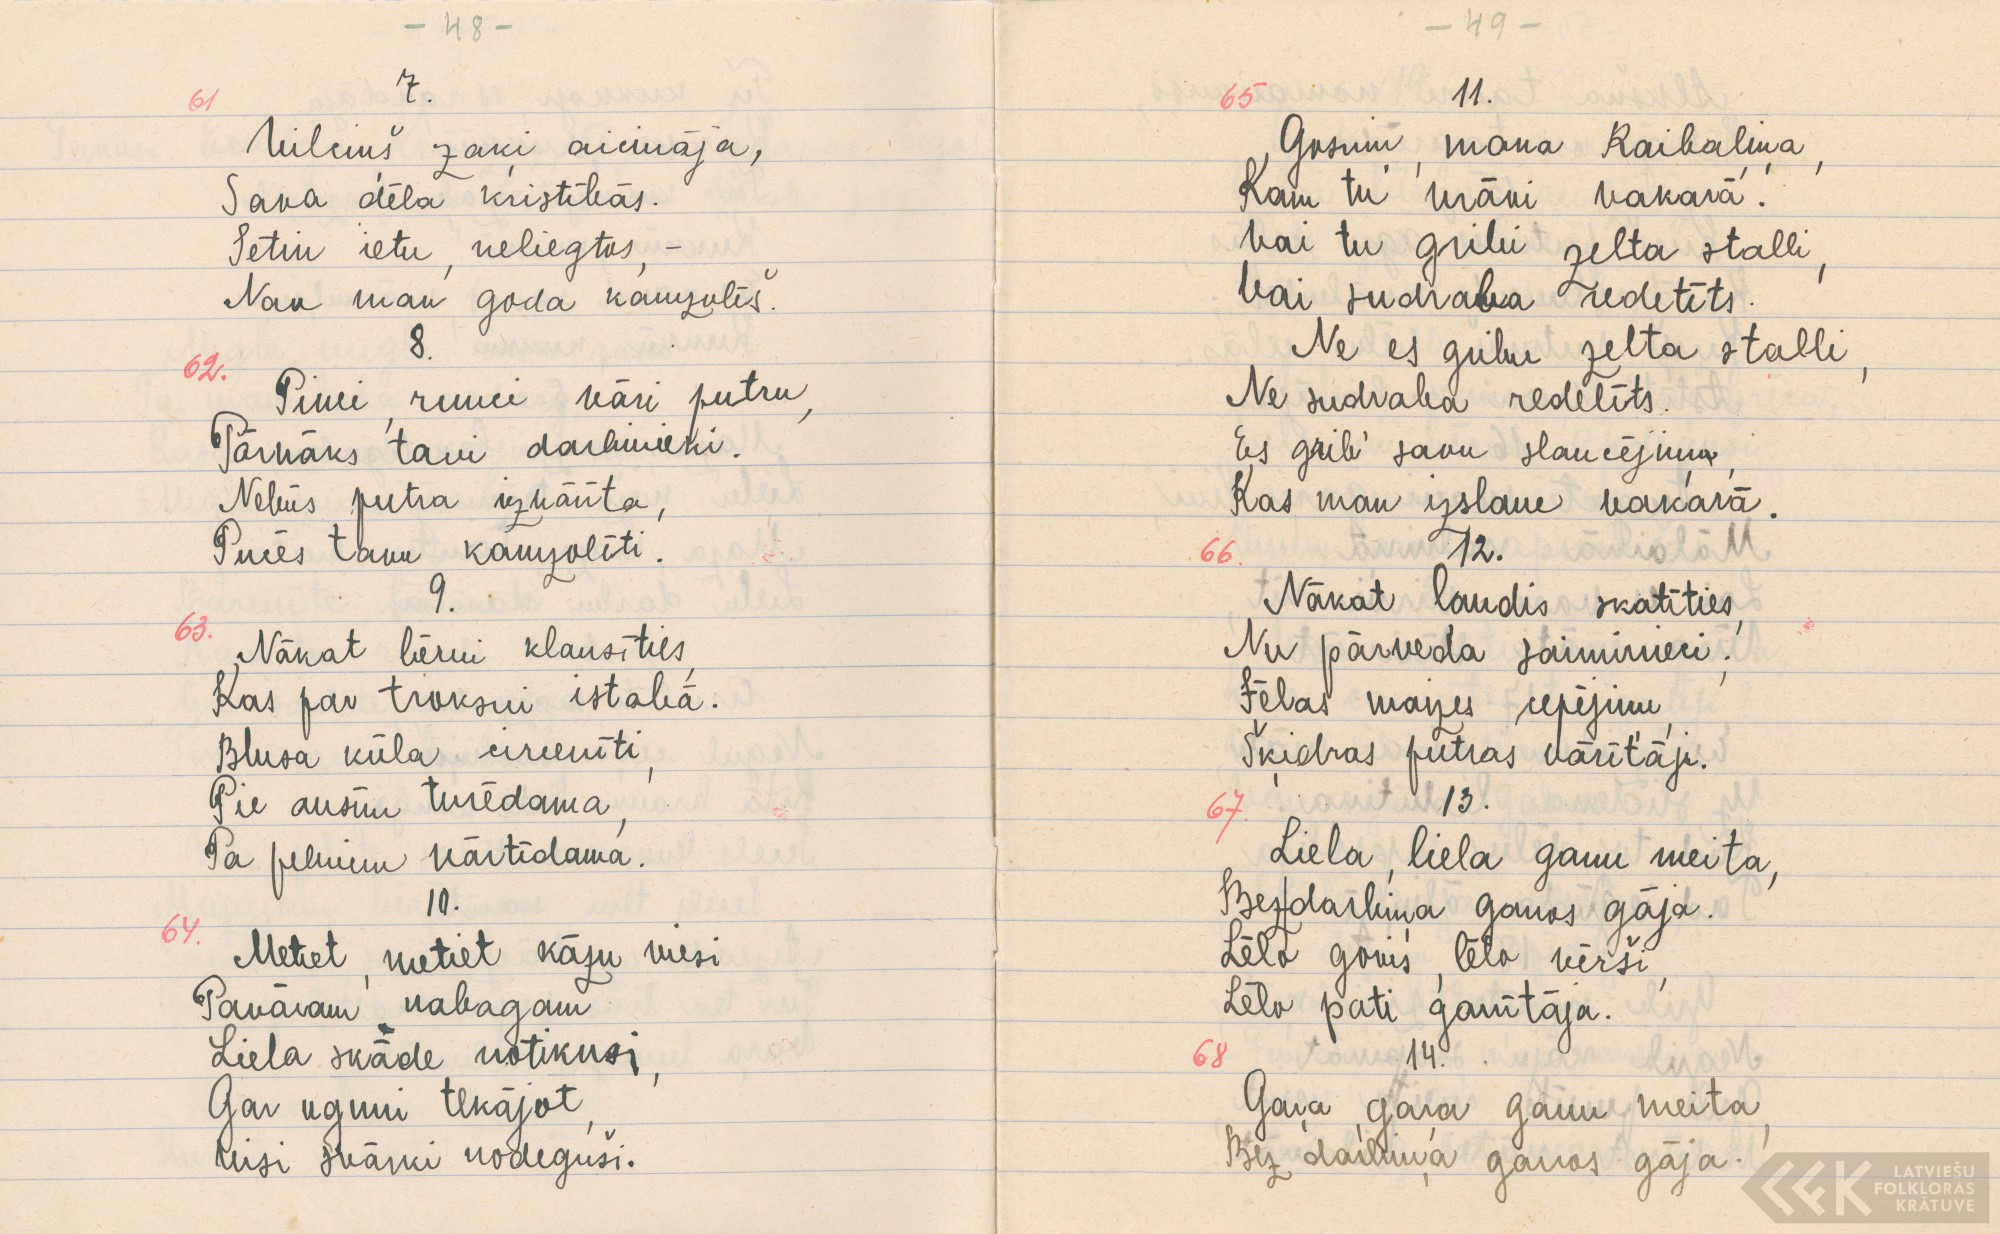 - 48 -
61
7.
Vilciņš zaķi aicināja,
Sava dēla kristībās.
Ietin ietu, neliegtos, -
Nav man goda kamzolīš.
8.
62.
Pinci, runci vāri putru,
Pārnāks tavi darbinieki.
Nebūs putra izvārīta,
Pučēs tavu kamzolīti.
9.
63.
Nākat bērni klausīties,
Kas par troksni istabā.
Blusa kūla circenīti,
Pie ausīm turēdama,
Pa pelniem vārtīdama.
10.
64.
Metiet, metiet kāzu viesi
Pavāram nabagam
Liela skāde notikusi,
Gar uguni tekājot,
visi svārki nodeguši.
- 49 -
65
11.
Gosniņ, mana Raibaliņa,
Kam tu māvi vakarā.
Vai tu gribi zelta stalli,
Vai sudraba redelīts.
Ne es gribu zelta stalli,
Ne sudraba redelīts.
Es grib' savu slaucējiņu,
Kas man izslauc vakarā.
66.
12.
Nākat ļaudis skatīties,
Nu pārveda saimnieci,
Sēlas maizes cepējiņu,
Šķidras putras vārītāji.
67.
13.
Liela, liela ganu meita,
Bez|darbiņa ganos gāja.
Lēlo govis, lēlo vērši,
Lēlo pati ganītāja.
68
14.
Gara, gara ganu meita,
Bez darbiņa ganos gāja.
LATVIEŠU
FOLKLORAS
KRĀTUVE